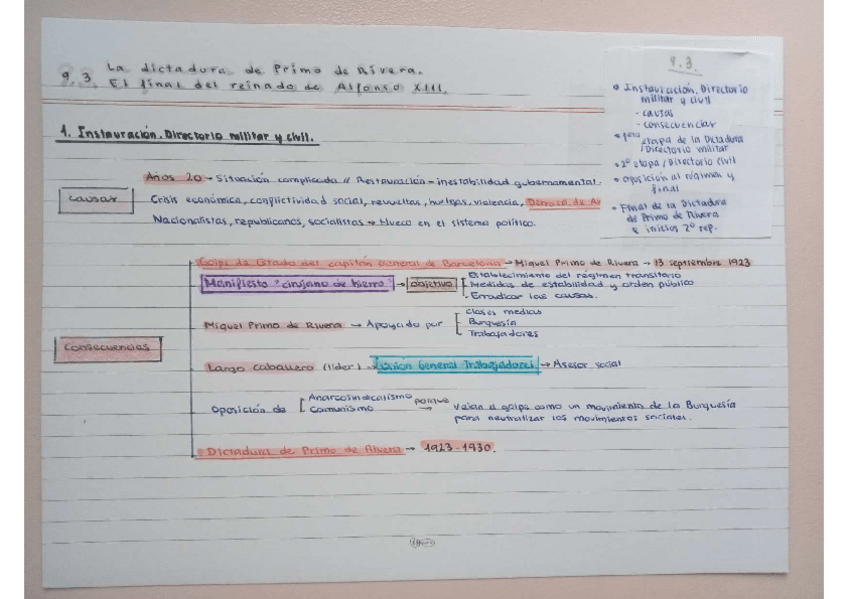 9.3. La dictadura de Primo de Rivera.
El final del reinado de Alfonso XIII.
1. Instauración. Directorio militar y civil.
causas
Años 20 → Situación complicada // Restauración = inestabilidad gubernamental.
Crisis económica, conflictividad social, revueltas, huelgas, violencia, Derrota de An
Nacionalistas, republicanos, socialistas → Hueco en el sistema político.
consecuencias
Golpe de Estado del capitán General de Barcelona → Miguel Primo de Rivera → 13 septiembre 1923
Manifiesto "cirujano de hierro" → objetivo
Establecimiento del régimen transitorio
Medidas de estabilidad y orden público
Erradicar las causas.
Miguel Primo de Rivera → Apoyado por
clases medias
Burguesía
Trabajadores
Largo caballero (líder) → Unión General Trabajadores → Asesor social
Oposición de
Anarcosindicalismo
comunismo
porque → veían el golpe como un movimiento de la Burguesía
para neutralizar los movimientos sociales.
Dictadura de Primo de Rivera → 1923-1930.
9.3.
• Instauración. Directorio
militar y civil
- causas
- consecuencias
• 1era etapa de la Dictadura
/Directorio militar
• 2º etapa/Directorio civil
• oposición al régimen y
final
• Final de la Dictadura
de Primo de Rivera
e inicios 2º rep.